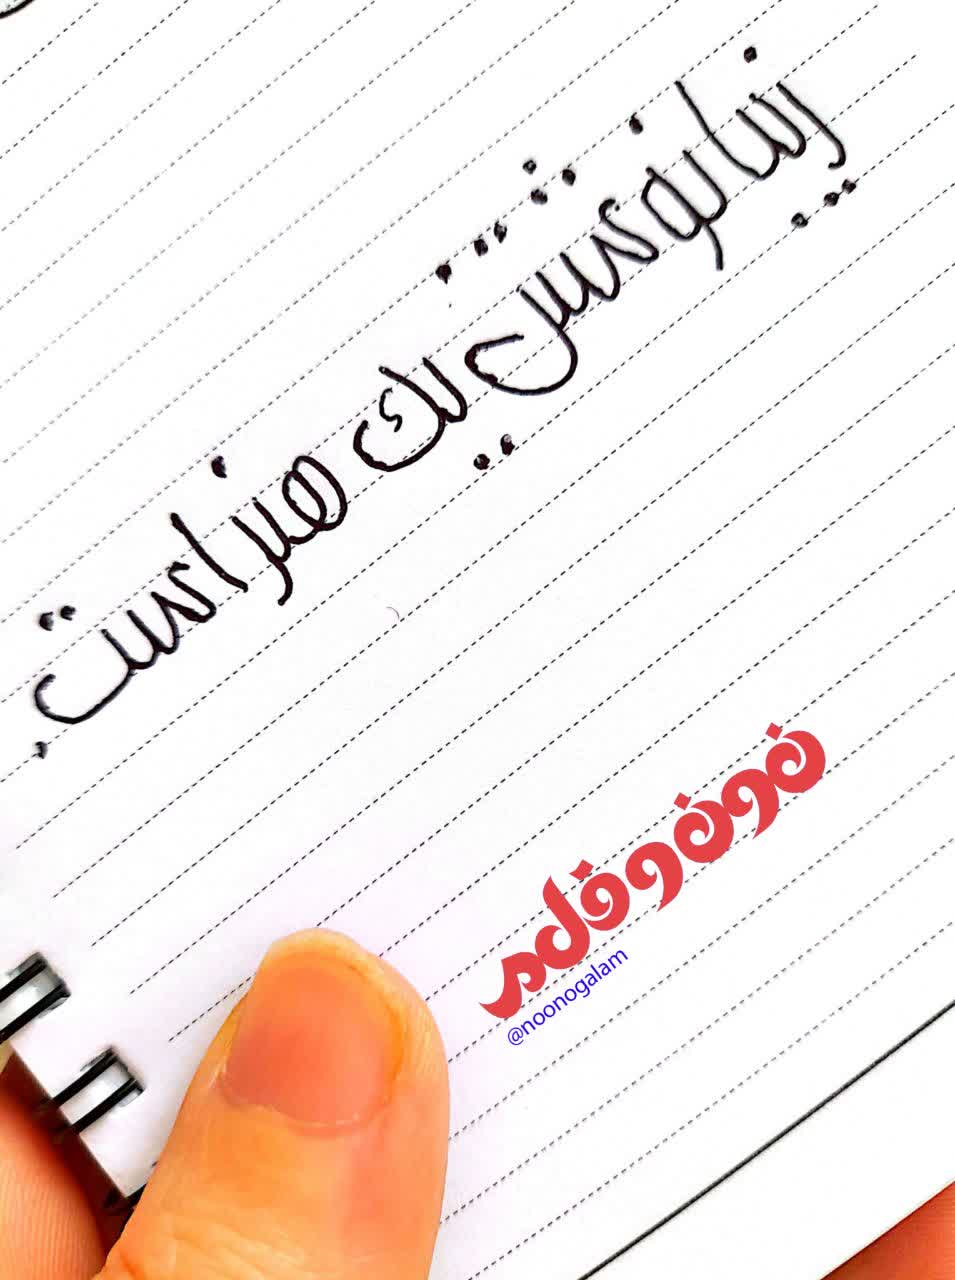 زیبا نوشتن یک هنر است.
ن و ن و قلم
@noonogalam